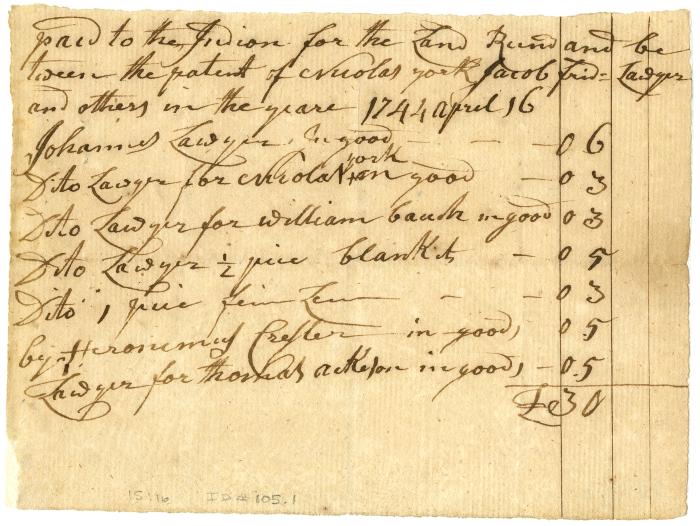 paid to the Indion for the Land Rund and be
tween the patent of Nicolas york Jacob frid= Lawyer
and others in the yeare 1744 april 16
Johannes Lawyer in good - - - 0 6
Dito Lawyer for Nicolas york in good - 0 3
Dito Lawyer for william bauch in good 0 3
Dito Lawyer ½ pice blankit - 0 5
Dito 1 pice - - 0 3
by Heronimus Cresler in goods 0 5
Lawyer for thomas ackeson in goods - 0 5
£ 30
15116 ID# 105.1